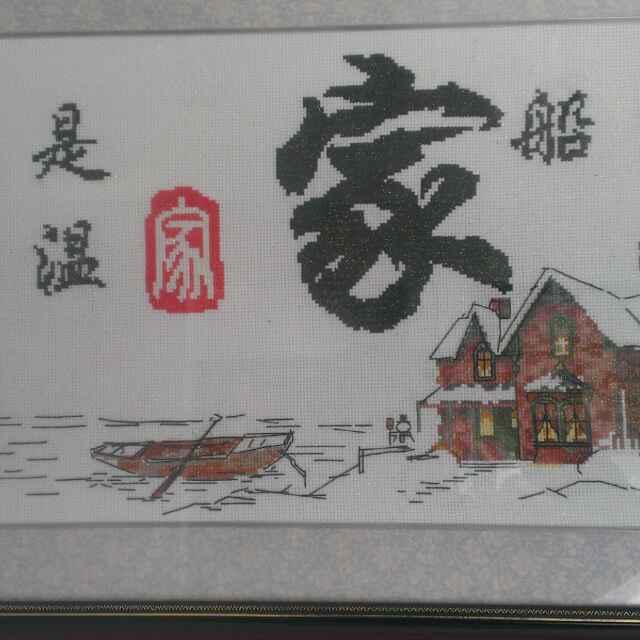 家
船
是
温
家